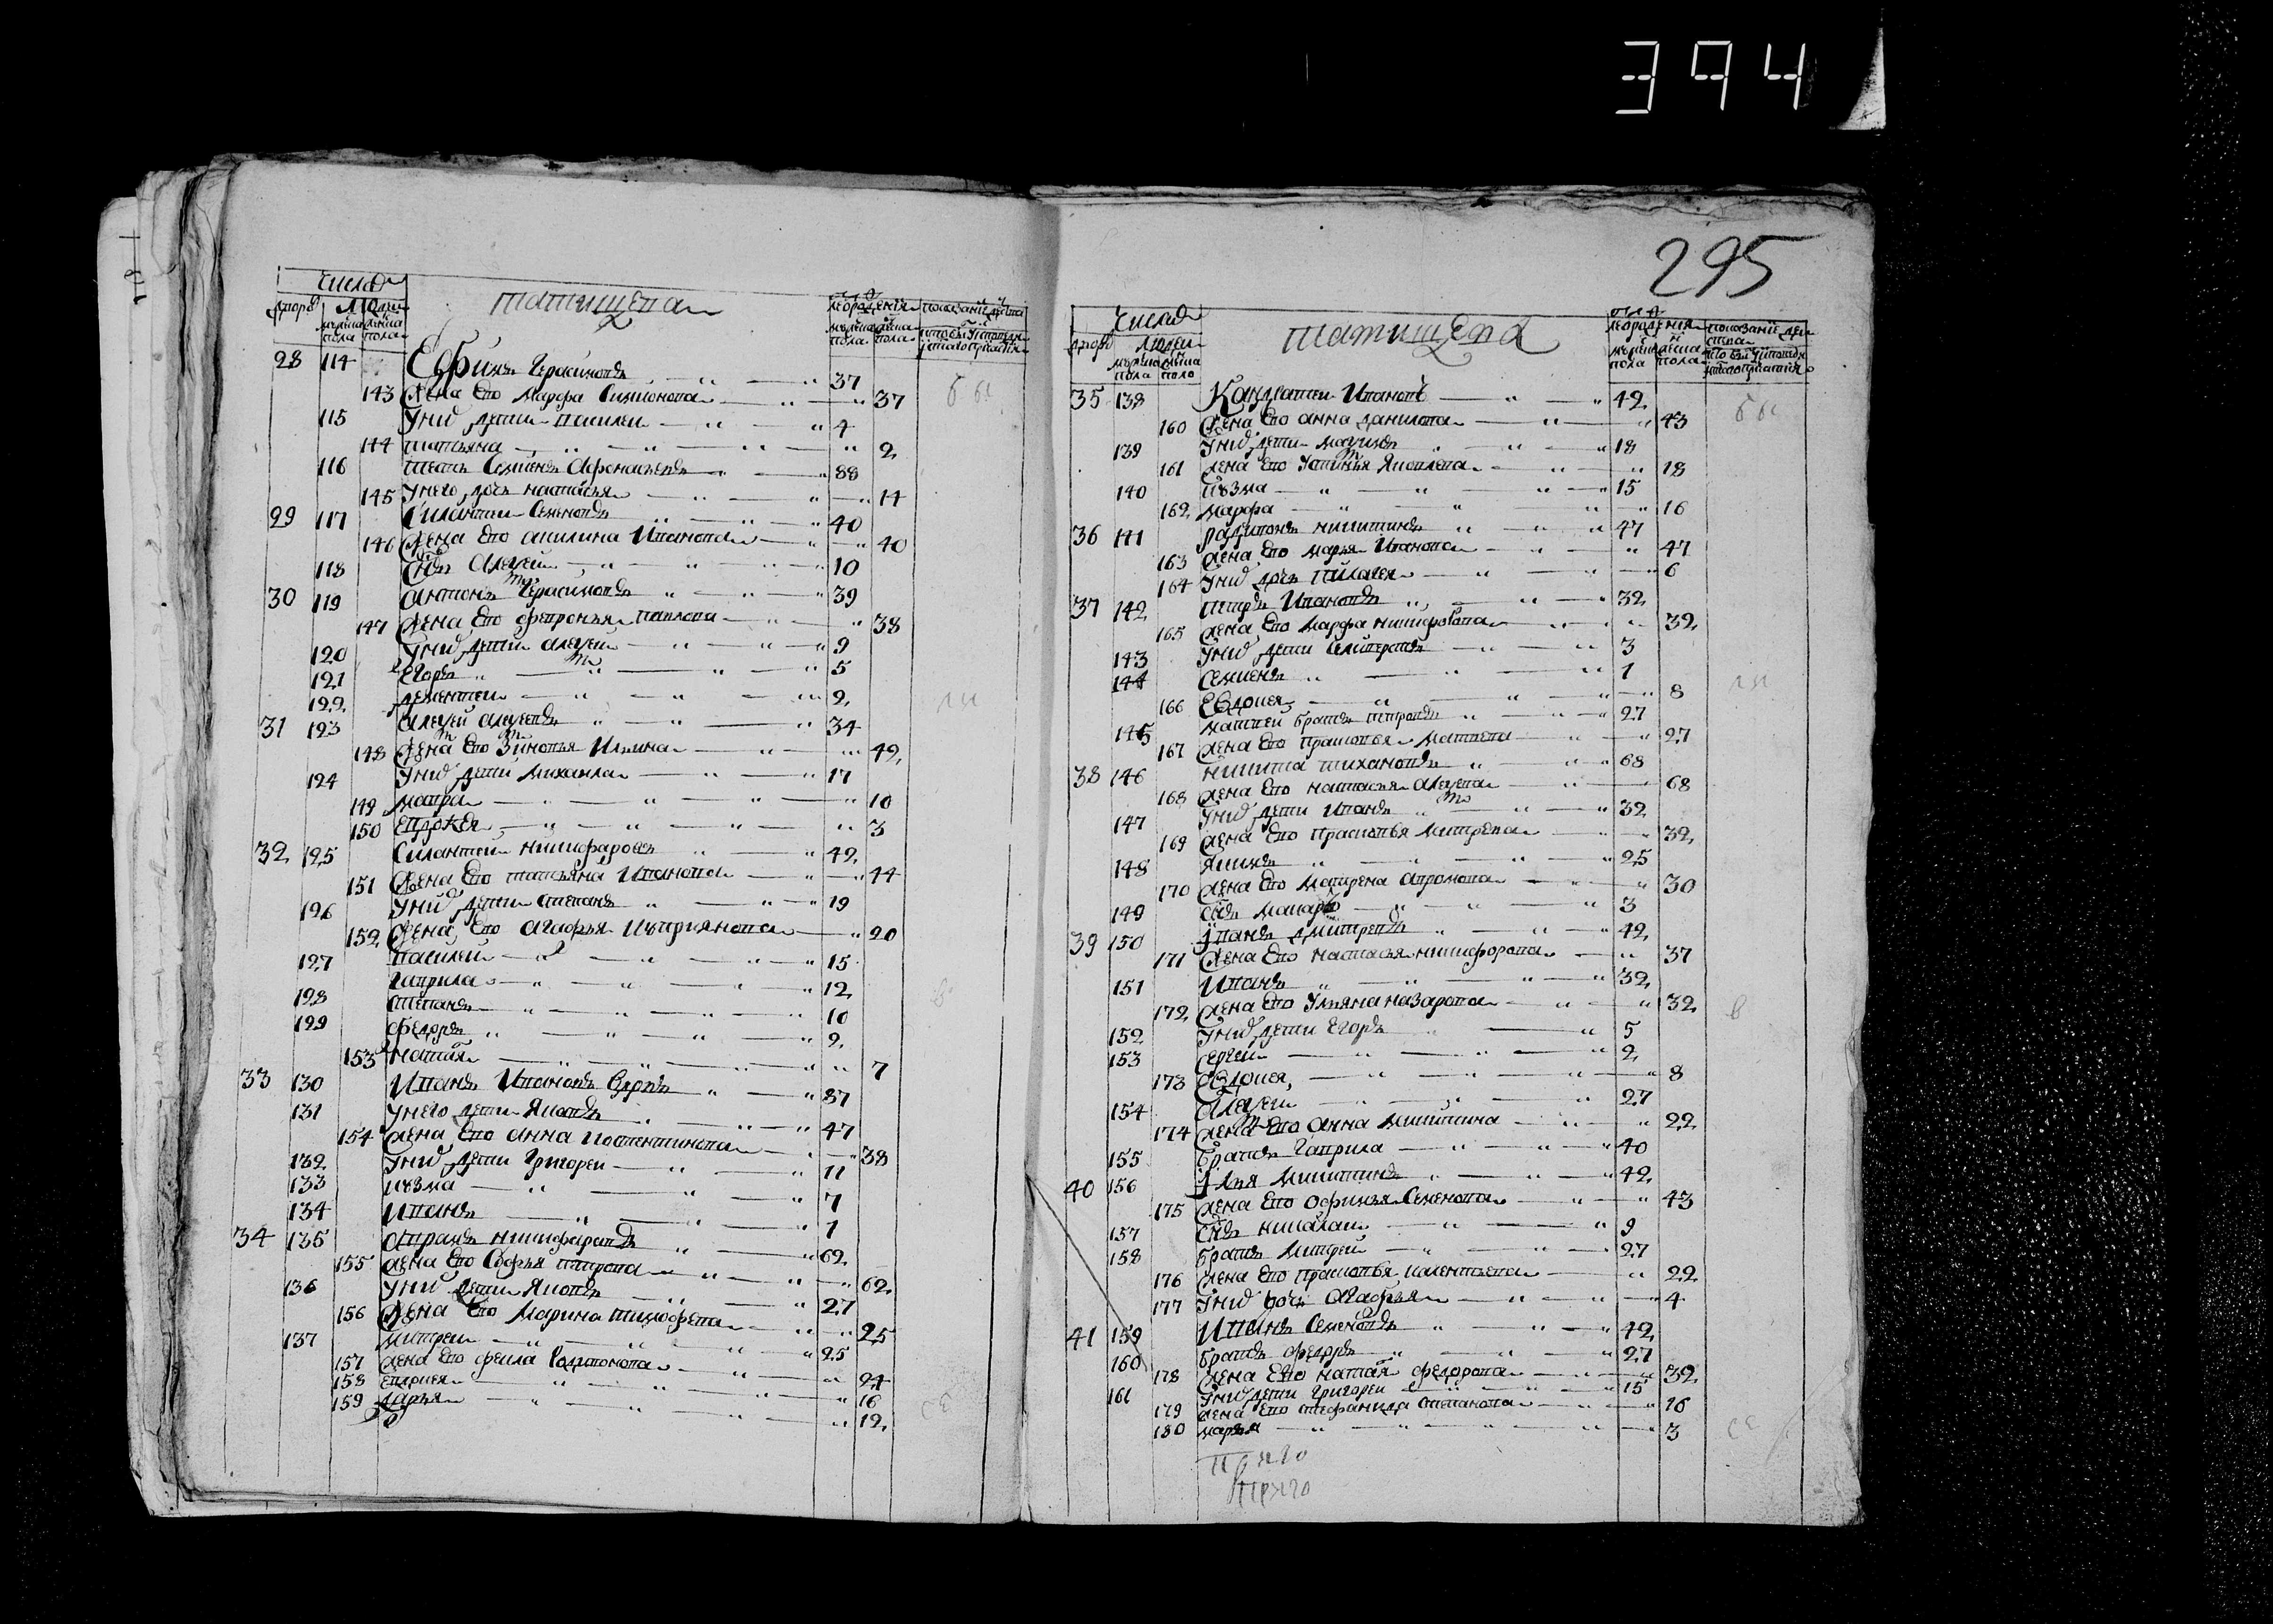 394
295
числа
дворо людеи
мужеска пола женска пола
Татищева
лета от рождения
мужеска пола женска пола
28 114 Ефимъ Герасимовъ 37
143 Жена Ево Марфа Симионова 37
115 Унихъ дети Василеи 4
144 татьяна 2
116 тесть Семенъ Афонасьевъ 88
145 Унего дочь настасья 14
29 117 Силантеи Семеновъ 40
146 Жена Ево акилина Иванова 40
118 Снъ Алексеи 10
30 119 антонъ Герасимовъ 39
147 Жена Ево февронья павлова 38
120 Унихъ дети алексеи 9
121 Егоръ 5
122 дементеи 2
31 123 алексеи алексеевъ 34
148 Жена Ево Зиновья Ильина 42
124 Унихъ дети михаила 17
149 мавра 10
150 Евдокея 3
32 125 Силантеи никифоровъ 42
151 Жена Ево татьяна Иванова 44
126 Унихъ дети степанъ 19
152 Жена Ево агафья Куприянова 20
127 василеи 15
128 гаврила 12
степанъ 10
129 федоръ 2
153 наталя 7
33 130 Иванъ Ивановъ 87
131 Унего дети Яковъ 47
154 жена Ево анна 38
132 Унихъ дети Григореи 11
133 кузма 7
134 Иванъ 1
34 135 аврамъ никифоровъ 62
155 жена Ево Софья петрова 62
136 Унихъ дети Яковъ 27
156 Жена Ево марина тимофеева 25
137 митреи 25
157 жена Ево фекла Родионова 24
158 евдокея 16
159 дарья 12
числа
дворо людеи
мужеска пола женска поло
Татищева
лета от рождения
мужеска пола женска пола
35 138 Кандратеи Ивановъ 42
160 Жена Ево анна данилова 43
139 Унихъ дети максимъ 18
161 жена Ево Устинья Яковлева 18
140 кузма 15
162 марфа 16
36 141 радивонъ никитинъ 47
163 жена Ево марья Иванова 47
164 Унихъ дочь пилагея 6
37 142 петръ Ивановъ 32
165 жена Ево марфа никифорова 32
143 Унихъ дети Селиверстъ 3
144 Семенъ 1
166 Евдокея 8
145 матвеи братъ петровъ 27
167 жена Ево прасковья матвеева 27
38 146 никита тихановъ 68
168 жена Ево настасья алексеева 68
147 Унихъ дети Иванъ 32
169 жена Ево прасковья митрева 32
148 Якимъ 25
170 жена Ево матрена 30
149 Снъ макаръ 3
39 150 Иванъ дмитревъ 42
171 жена Ево настасья никифорова 37
151 Иванъ 32
172 жена Ево Ульяна назарова 32
152 Унихъ дети Егоръ 5
153 сергеи 2
173 Овдокея 8
154 алексеи 27
174 жена Ево анна микитина 22
155 братъ гаврила 40
40 156 Илья микитинъ 42
175 жена Ево Офимья Семенова 43
157 Снъ николаи 9
158 братъ митреи 27
176 жена Ево прасковья 22
177 Унихъ дочь агафья 4
41 159 Иванъ Семеновъ 42
160 братъ федоръ 27
178 жена Ево наталя федорова 32
161 Унихъ дети григореи 15
179 жена Ево стефанида степанова 16
180 марья 3